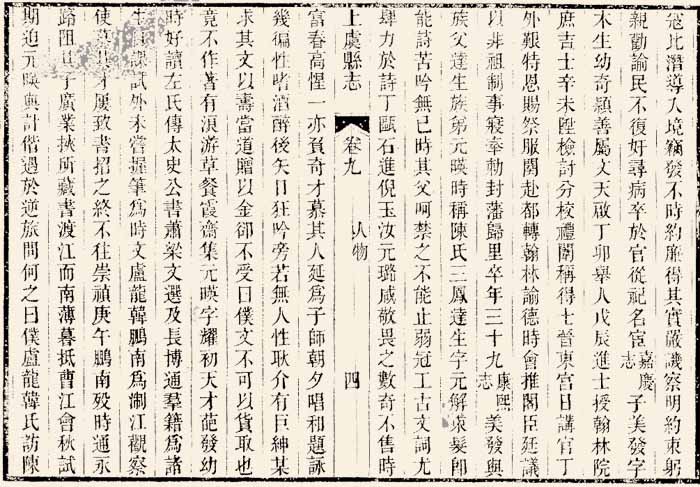 寇比潛導入境竊發不時約廉得其實嚴譏察明約束躬
親勸諭民不復好尋病卒於官從祀名宦嘉慶志子美發字
木生幼奇穎善屬文天啟丁卯舉人戊辰進士授翰林院
庶吉士辛未陞檢討分校禮闈稱得士晉東宮日講官丁
外艱特恩賜祭服闋赴都轉翰林諭德時會推閣臣廷議
以非祖制事寢奉勅封藩歸里卒年三十九康熙志美發與
族父達生族弟元暎時稱陳氏三鳳達生字元解束髮卽
能詩苦吟無已時其父呵禁之不能止弱冠工古文詞尤
肆力於詩丁甌石進倪玉汝元璐咸敬畏之數奇不售時
上虞縣志
卷九
人物
四
富春高惺一亦負奇才慕其人延爲子師朝夕唱和題詠
幾徧性嗜酒醉後矢口狂吟旁若無人性耿介有巨紳某
求其文以壽當道贈以金卻不受曰僕文不可以貨取也
竟不作著有浪游草餐霞齋集元暎字耀初天才葩發幼
時好讀左氏傳太史公書蕭梁文選及長博通羣籍爲諸
生課試外未嘗握筆爲時文盧龍韓鵬南爲浙江觀察
使慕其才屢致書招之終不往崇禎庚午鵬南歿時通永
路阻其子廣業挾所藏書渡江而南薄暮抵曹江會秋試
期迫元暎與計偕遇於逆旅問何之曰僕盧龍韓氏訪陳